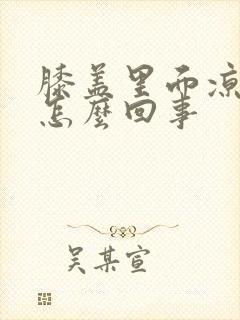 膝盖里面凉
怎麽回事
吴某宣